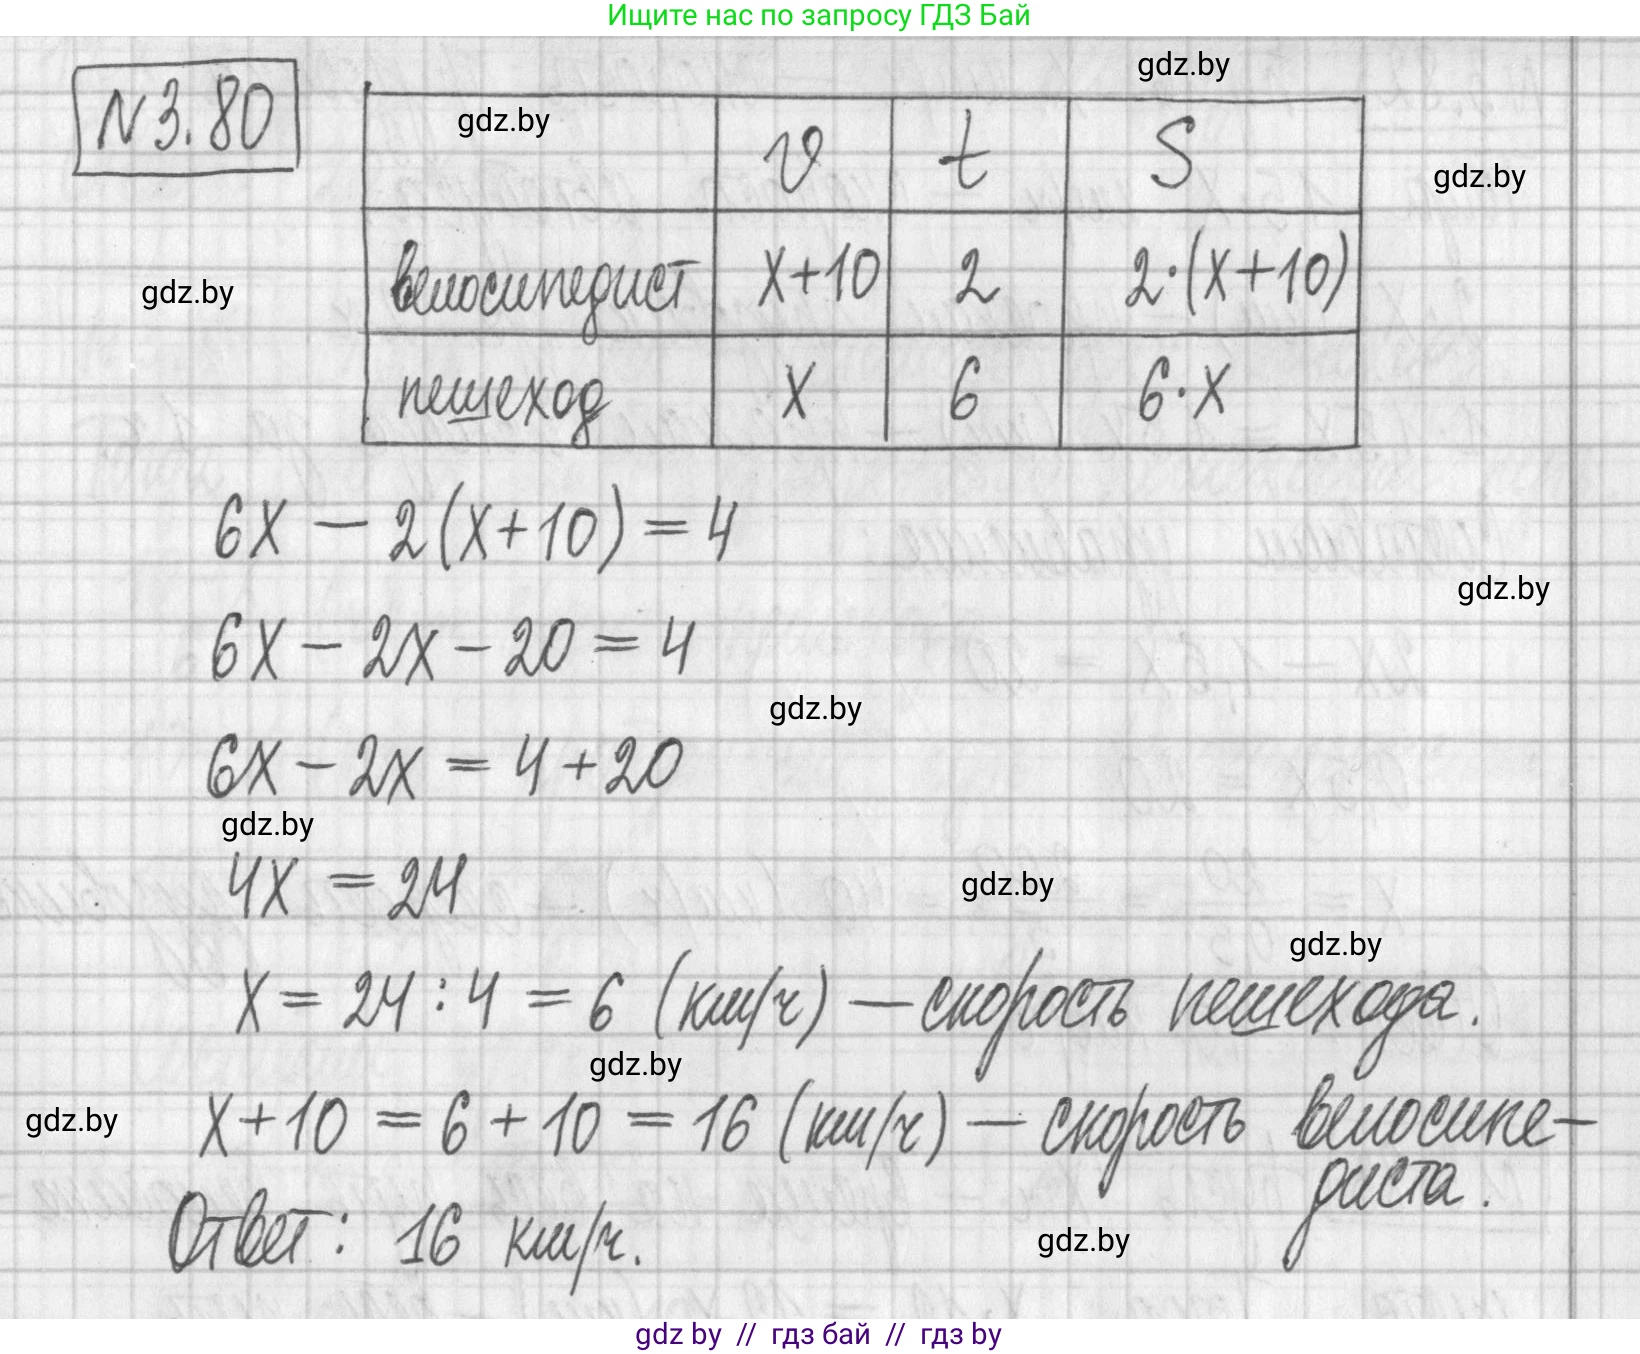 Ищите нас по запросу ГДЗ Бай
gdz.by
N 3.80
gdz.by
v t S
gdz.by
велосипедист x+10 2 2·(x+10)
gdz.by
пешеход x 6 6·x
6x − 2(x+10) = 4
gdz.by
6x − 2x − 20 = 4
gdz.by
6x − 2x = 4 + 20
gdz.by
4x = 24
gdz.by
gdz.by
x = 24 : 4 = 6 (км/ч) — скорость пешехода.
gdz.by
gdz.by
x + 10 = 6 + 10 = 16 (км/ч) — скорость велосипе-
диста.
Ответ: 16 км/ч.
gdz.by
gdz by // гдз бай // гдз by